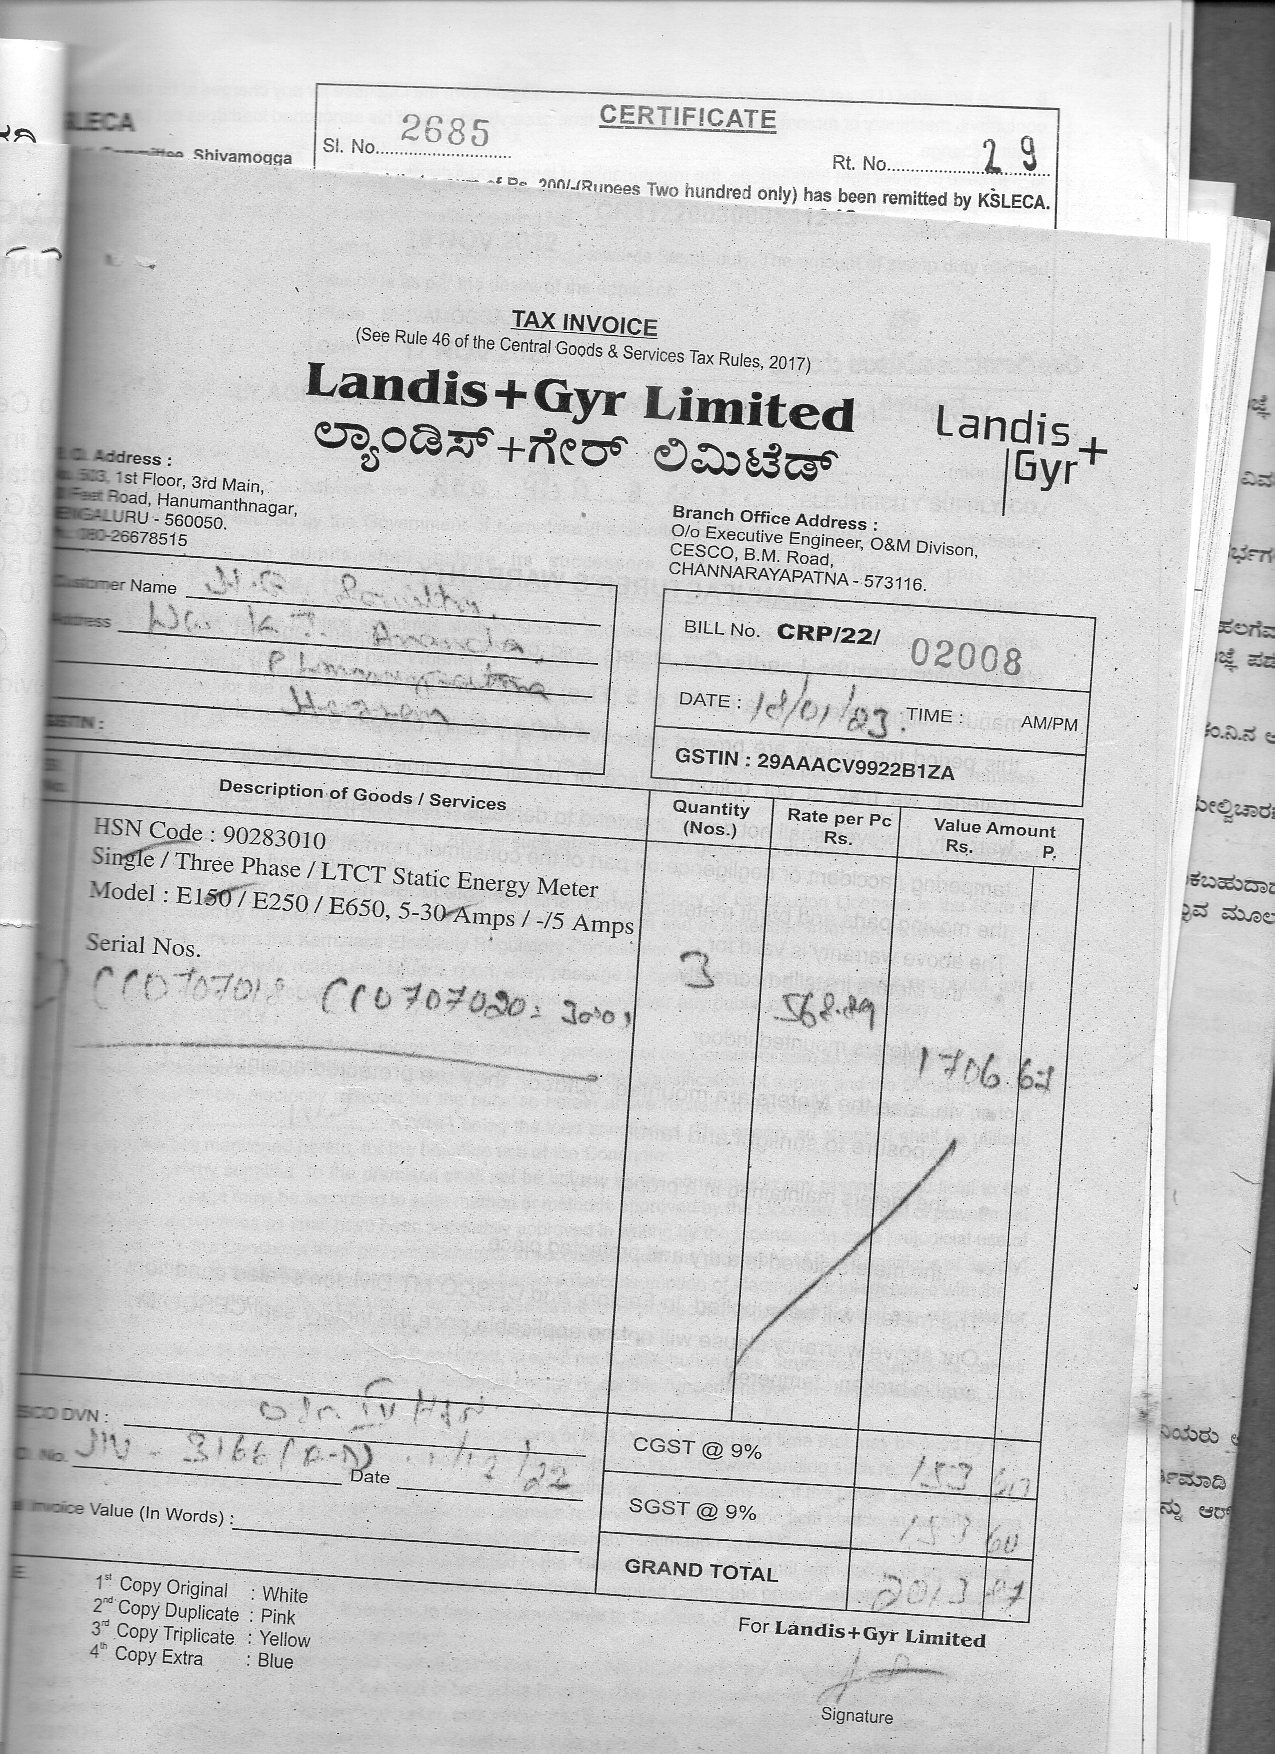 SLECA
Shivamogga
CERTIFICATE
Sl. No. 2685
Rt. No. 29
of Rs. 200/-(Rupees Two hundred only) has been remitted by KSLECA.
TAX INVOICE
(See Rule 46 of the Central Goods & Services Tax Rules, 2017)
Landis+Gyr Limited
ಲ್ಯಾಂಡಿಸ್+ಗೇರ್ ಲಿಮಿಟೆಡ್
Landis+
Gyr
Address :
503, 1st Floor, 3rd Main,
Feet Road, Hanumanthnagar,
BENGALURU - 560050.
080-26678515
Branch Office Address :
O/o Executive Engineer, O&M Divison,
CESCO, B.M. Road,
CHANNARAYAPATNA - 573116.
Customer Name
Address
K.J. Ananda,
Hassan
GSTIN :
BILL No. CRP/22/ 02008
DATE : 18/01/23. TIME : AM/PM
GSTIN : 29AAACV9922B1ZA
Sl. No.
Description of Goods / Services
Quantity (Nos.)
Rate per Pc Rs.
Value Amount Rs. P.
HSN Code : 90283010
Single / Three Phase / LTCT Static Energy Meter
Model : E150 / E250 / E650, 5-30 Amps / -/5 Amps
Serial Nos.
CC0707018 CC0707020 = 3nos,
3
568.89
1706.67
SCO DVN :
No. JIN - 3166 (A-D) Date 1/12/22
Invoice Value (In Words) :
CGST @ 9% 153 60
SGST @ 9% 153 60
GRAND TOTAL 2013 87
1st Copy Original : White
2nd Copy Duplicate : Pink
3rd Copy Triplicate : Yellow
4th Copy Extra : Blue
For Landis+Gyr Limited
Signature